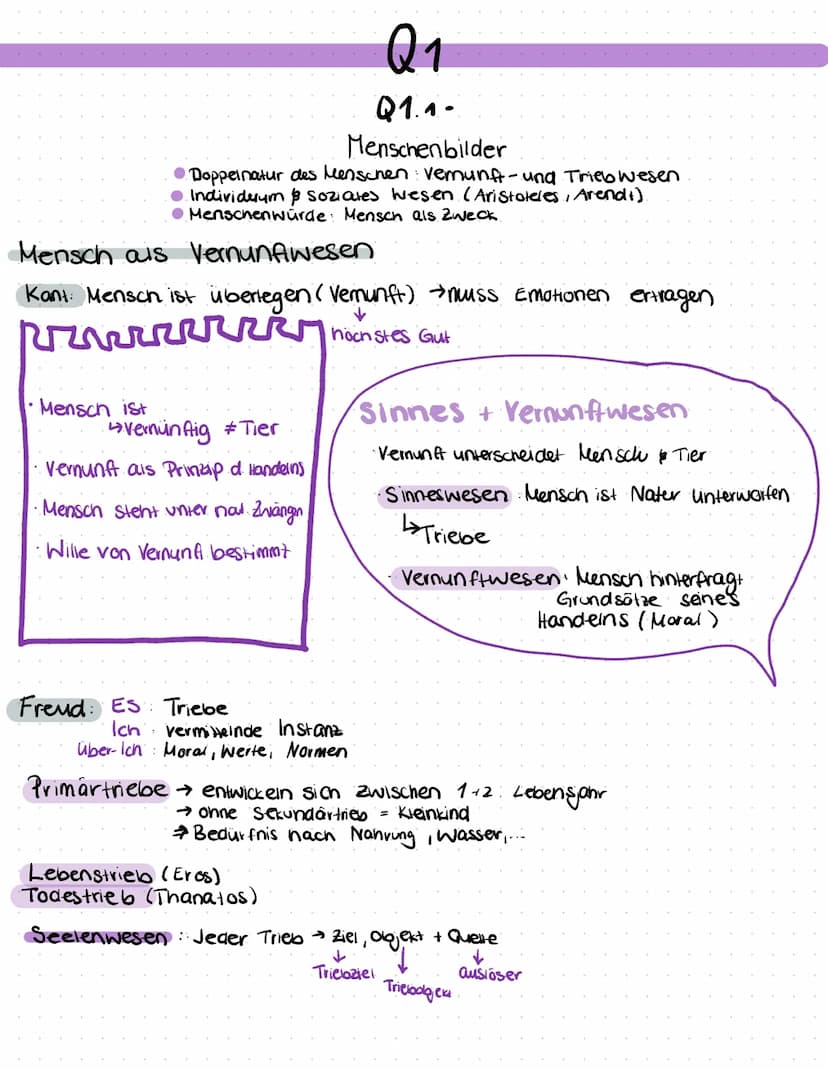 Q1
Q1.1-
Menschenbilder
Doppelnatur des Menschen : Vernunft- und Triebwesen
Individuum & soziales Wesen (Aristoteles, Arendt)
Menschenwürde: Mensch als Zweck
Mensch als Vernunftwesen
Kant: Mensch ist überlegen (Vernunft) → muss Emotionen ertragen
↓
höchstes Gut
· Mensch ist
↳ vernünftig ≠ Tier
· Vernunft als Prinzip d. Handelns
· Mensch steht unter nat. Zwängen
· Wille von Vernunft bestimmt
Sinnes + Vernunftwesen
· Vernunft unterscheidet Mensch & Tier
· Sinneswesen : Mensch ist Natur unterworfen
↳ Triebe
· Vernunftwesen: Mensch hinterfragt
Grundsätze seines
Handelns (Moral)
Freud: ES : Triebe
Ich : vermittelnde Instanz
Über-Ich : Moral, Werte, Normen
Primärtriebe → entwickeln sich zwischen 1+2. Lebensjahr
→ ohne Sekundärtrieb = Kleinkind
→ Bedürfnis nach Nahrung, Wasser,...
Lebenstrieb (Eros)
Todestrieb (Thanatos)
Seelenwesen : Jeder Trieb → Ziel, Objekt + Quelle
↓ ↓ ↓
Triebziel Triebobjekt auslöser